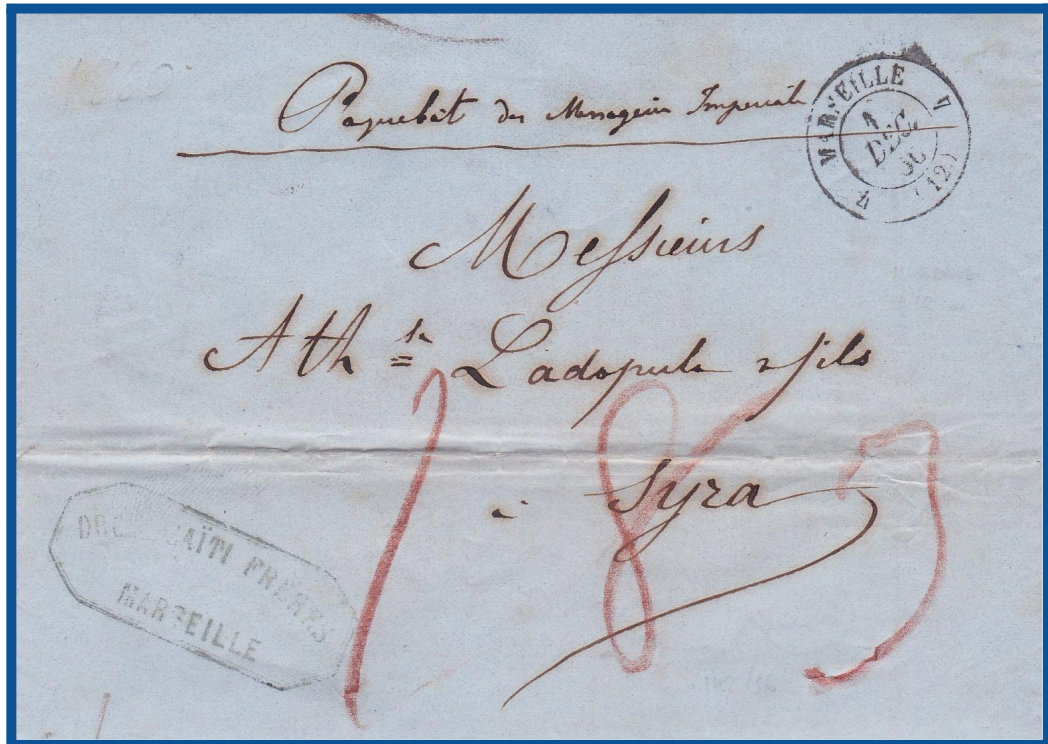 Paquebot des Messagerie Imperiale
MARSEILLE
DEC.
(12)
Messieurs
Ath Ladopulo & fils
à Syra
183
FRERES
MARSEILLE